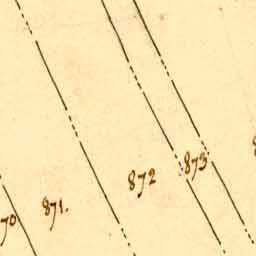 872
873
871.
70